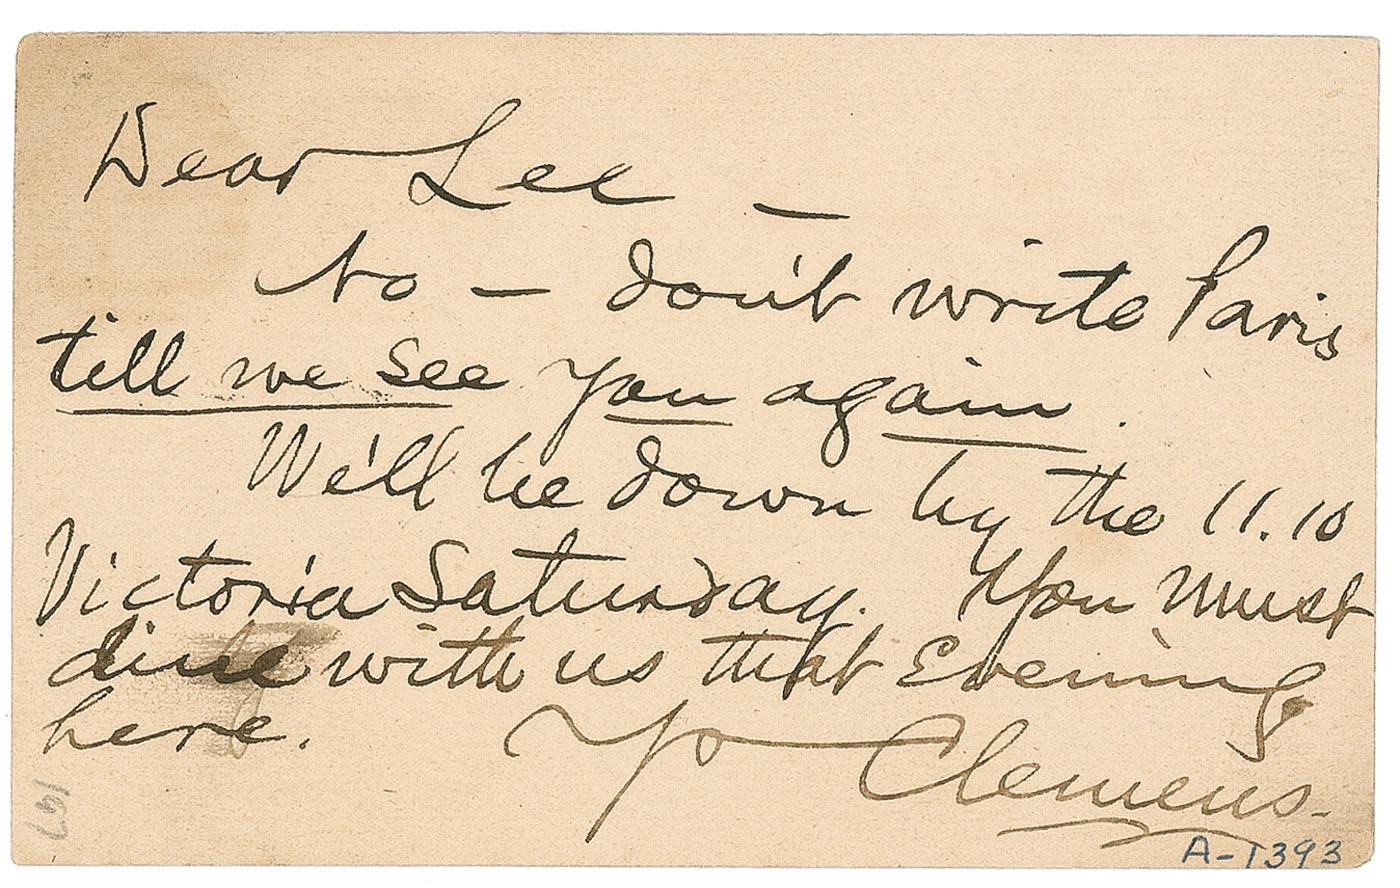 Dear Lee —
No — don't write Paris
till we see you again.
We'll be down by the 11.10
Victoria Saturday. You must
dine with us that Evening
here.
Yr Clemens.
167
A-1393